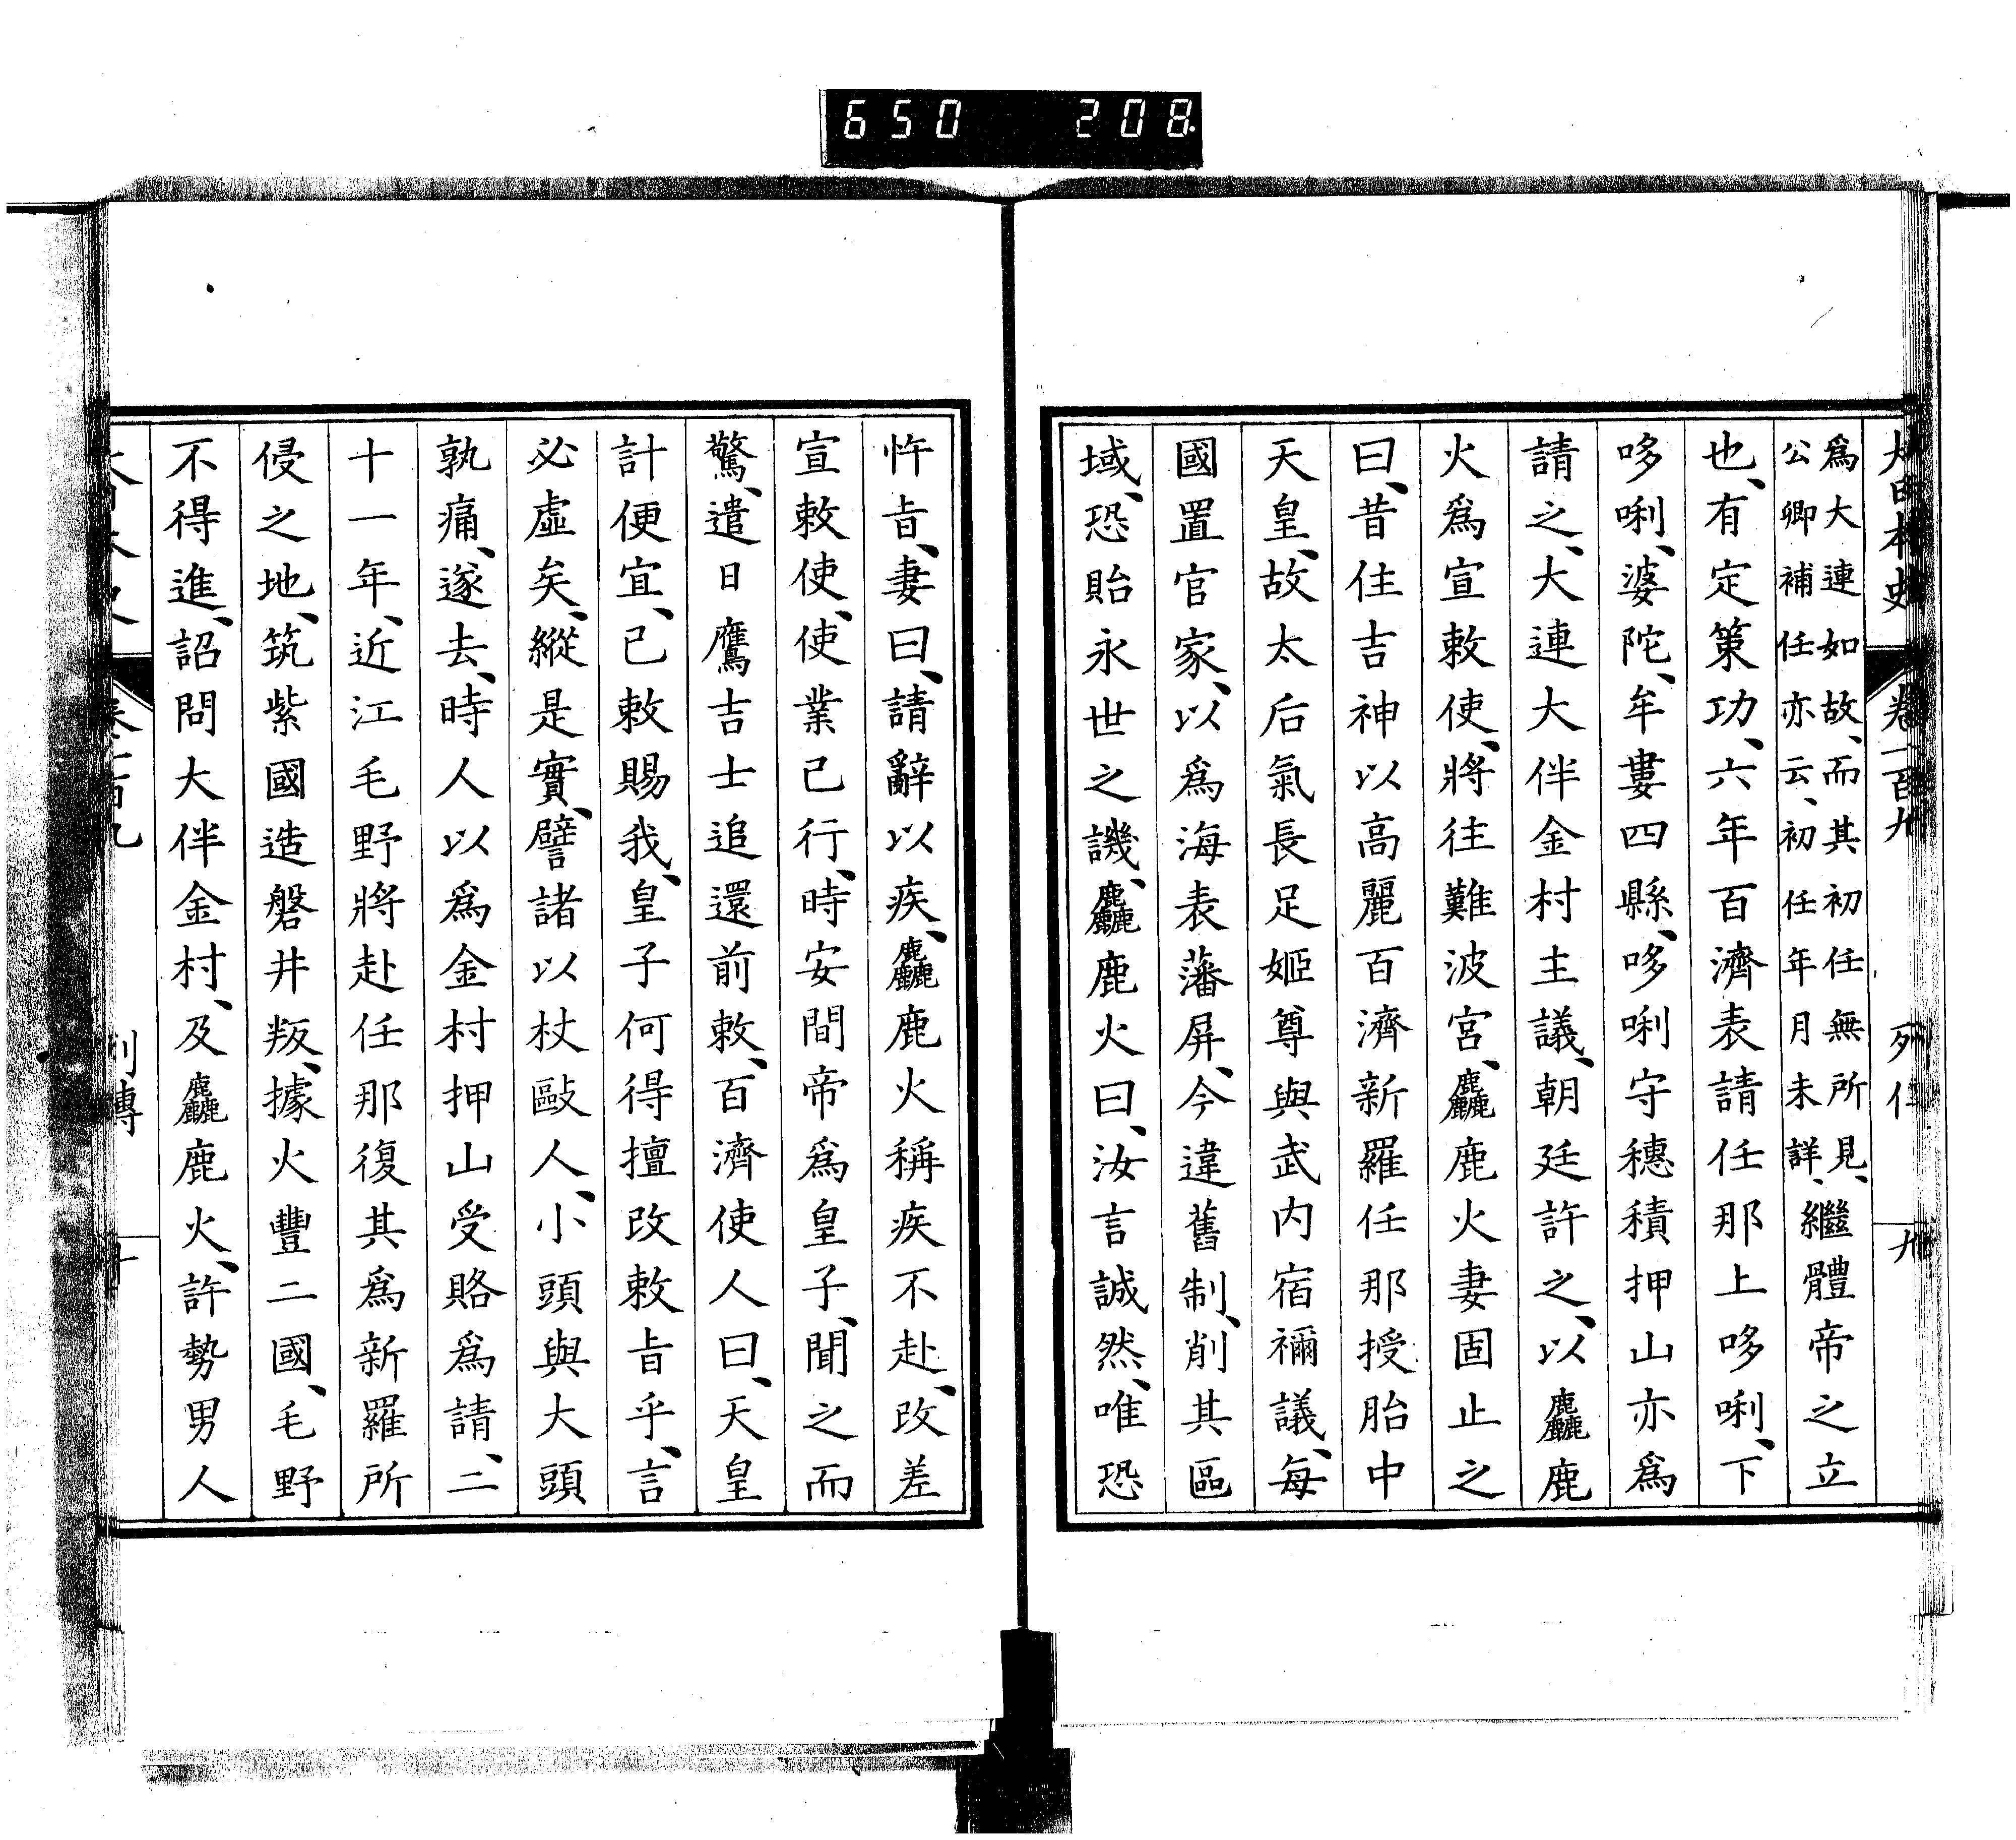 650 208
大日本史 卷一百九 列傳 九
爲大連如故、而其初任無所見、
公卿補任亦云、初任年月未詳、
繼體帝之立
也、有定策功、六年百濟表請任那上哆唎、下
哆唎、婆陀、牟婁四縣、哆唎守穗積押山亦爲
請之、大連大伴金村主議、朝廷許之、以麤鹿
火爲宣敕使、將往難波宮、麤鹿火妻固止之
曰、昔住吉神以高麗百濟新羅任那授胎中
天皇、故太后氣長足姬尊與武内宿禰議、每
國置官家、以爲海表藩屏、今違舊制、削其區
域、恐貽永世之譏、麤鹿火曰、汝言誠然、唯恐
忤旨、妻曰、請辭以疾、麤鹿火稱疾不赴、改差
宣敕使、使業已行、時安間帝爲皇子、聞之而
驚、遣日鷹吉士追還前敕、百濟使人曰、天皇
計便宜、已敕賜我、皇子何得擅改敕旨乎、言
必虛矣、縱是實、譬諸以杖毆人、小頭與大頭
孰痛、遂去、時人以爲金村押山受賂爲請、二
十一年、近江毛野將赴任那復其爲新羅所
侵之地、筑紫國造磐井叛、據火豐二國、毛野
不得進、詔問大伴金村、及麤鹿火、許勢男人
大日本史 卷一百九 列傳 十